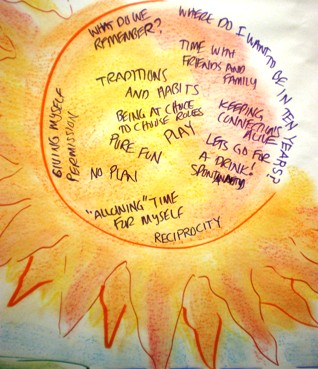 WHAT DO WE
REMEMBER?
WHERE DO I WANT TO BE IN TEN YEARS?
TIME WITH
FRIENDS AND
FAMILY
TRADITIONS
AND HABITS
GIVING MYSELF
PERMISSION
BEING AT CHOICE
TO CHOOSE ROLES
PLAY
KEEPING
CONNECTIONS
ALIVE
PURE FUN
LETS GO FOR
A DRINK!
NO PLAN
"ALLOWING" TIME
FOR MYSELF
RECIPROCITY